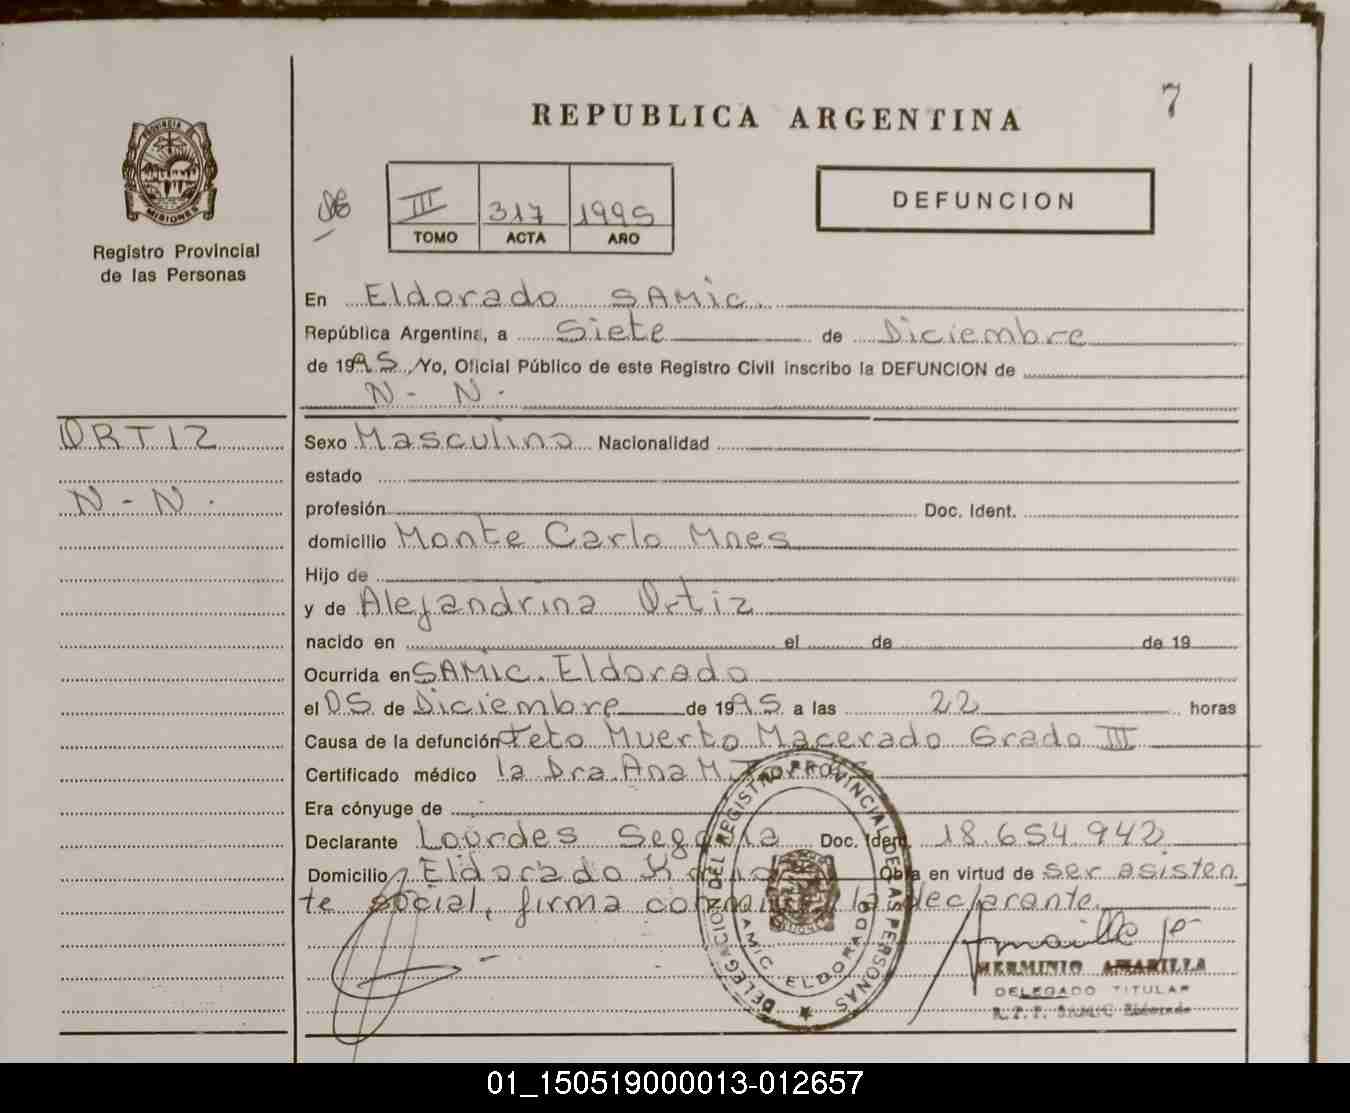 7
REPUBLICA ARGENTINA
PROVINCIA DE
MISIONES
Registro Provincial
de las Personas
III 317 1995
TOMO ACTA AÑO
DEFUNCION
En Eldorado SAMIC.
República Argentina, a Siete de Diciembre
de 1995. Yo, Oficial Público de este Registro Civil inscribo la DEFUNCION de
N - N.
ORTIZ
N - N.
Sexo Masculino Nacionalidad
estado
profesión Doc. Ident.
domicilio Monte Carlo Mnes
Hijo de
y de Alejandrina Ortiz
nacido en el de de 19
Ocurrida en SAMIC. Eldorado
el 05 de Diciembre de 1995 a las 22 horas
Causa de la defunción Feto Muerto Macerado Grado III
Certificado médico la Dra. Ana M.
Era cónyuge de
Declarante Lourdes Segovia Doc. Ident. 18.654.942
Domicilio Eldorado Obra en virtud de ser asisten
te social, firma conmigo la declarante.
DELEGACION DEL REGISTRO PROVINCIAL DE LAS PERSONAS
SAMIC ELDORADO
HERMINIO AMARILLA
DELEGADO TITULAR
R.P.P. SAMIC Eldorado
01_150519000013-012657